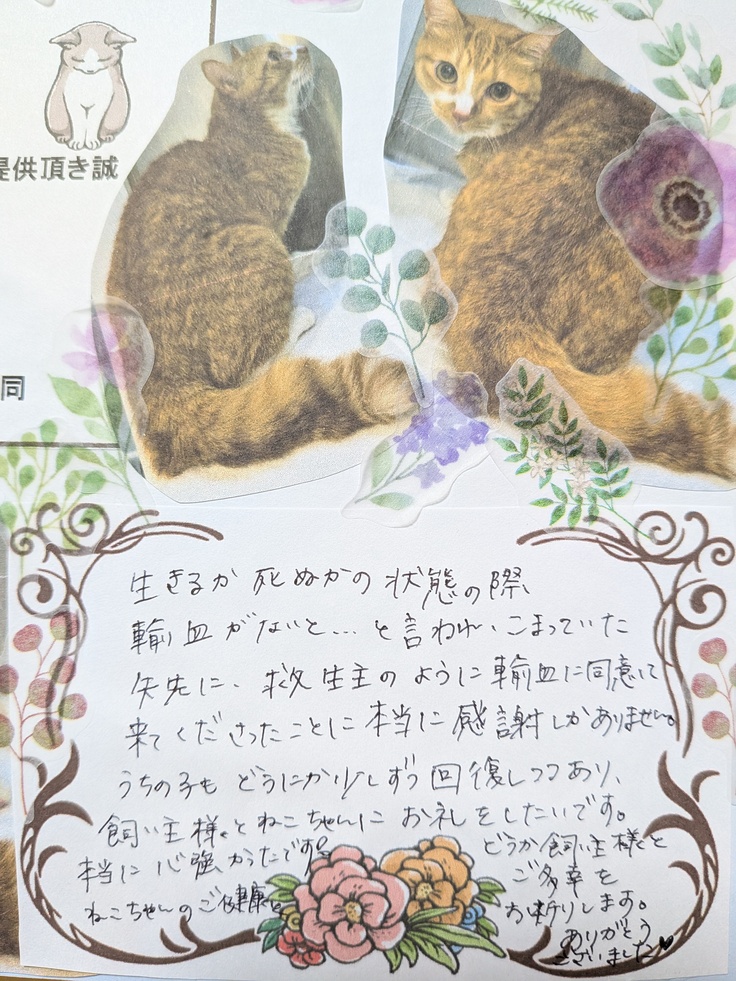 提供頂き誠
同
生きるか死ぬかの状態の際、
輸血がないと…と言われ、こまっていた
矢先に、救生主のように輸血に同意して
来てくださったことに本当に感謝しかありません。
うちの子も どうにか少しずつ回復しつつあり、
飼い主様とねこちゃんに お礼をしたいです。
本当に心強かったです。
ねこちゃんのご健康と
どうか飼い主様と
ご多幸を
お祈りします。
ありがとう
ございました♥